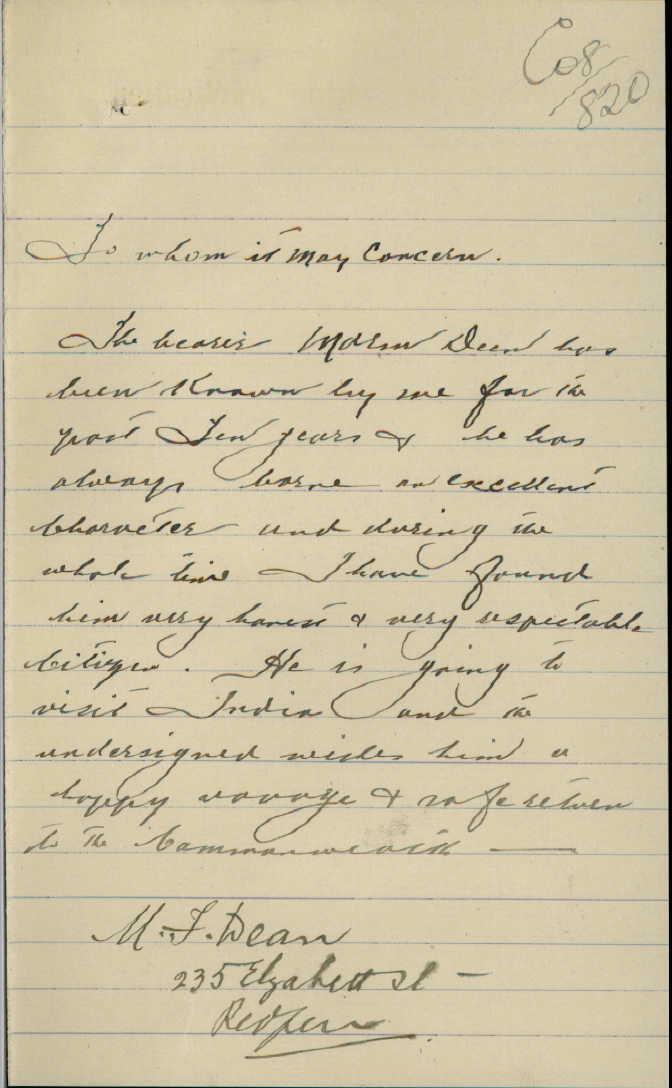 C08/820
To whom it may Concern.
The bearer Meran Deen has
been Known by me for the
past Ten years & he has
always borne an excellent
Character and during the
whole time I have found
him very honest & very respectable
Citizen. He is going to
visit India and the
undersigned wishes him a
happy voyage & safe return
to the Commonwealth —
M. F. Dean
235 Elizabeth St —
Redfern